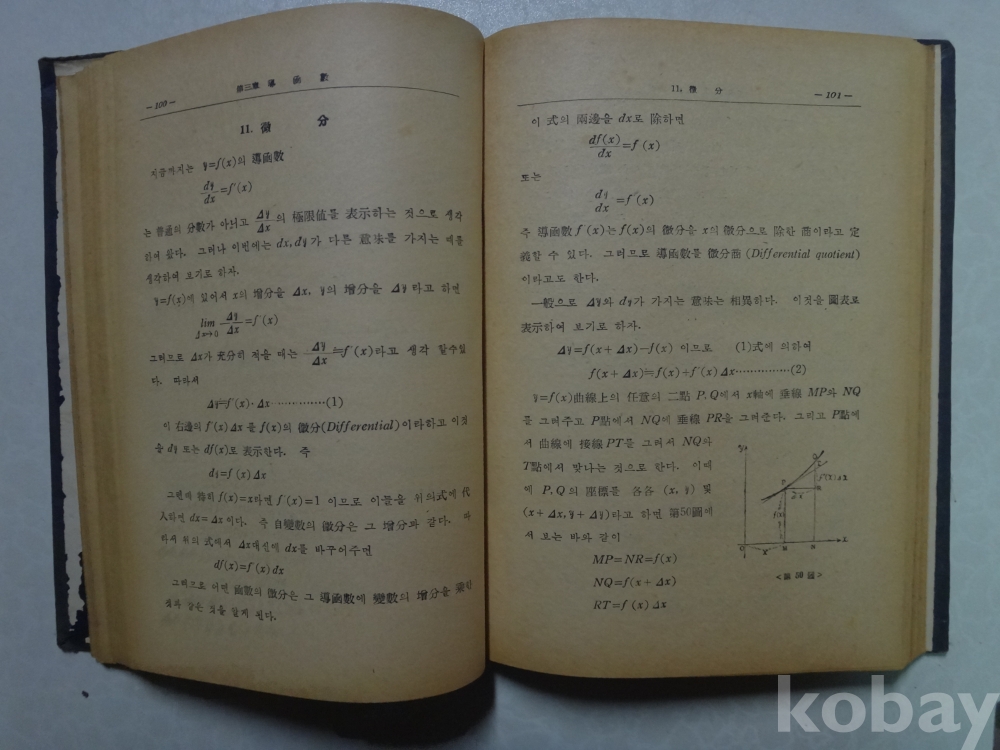 — 100 —
第三章 導 函 數
11. 微 分
지금까지는 y=f(x)의 導函數
dy/dx=f′(x)
는 普通의 分數가 아니고 Δy/Δx의 極限値를 表示하는 것으로 생각
하여 왔다. 그러나 이번에는 dx, dy가 다른 意味를 가지는 때를
생각하여 보기로 하자.
y=f(x)에 있어서 x의 增分을 Δx, y의 增分을 Δy라고 하면
lim Δx→0 Δy/Δx=f′(x)
그러므로 Δx가 充分히 적을 때는 Δy/Δx≒f′(x)라고 생각 할수있
다. 따라서
Δy≒f′(x)·Δx……………(1)
이 右邊의 f′(x)Δx를 f(x)의 微分(Differential)이라하고 이것
을 dy 또는 df(x)로 表示한다. 즉
dy=f′(x)Δx
그런데 特히 f(x)=x라면 f′(x)=1 이므로 이들을 위의式에 代
入하면 dx=Δx이다. 즉 自變數의 微分은 그 增分과 같다. 따
라서 위의 式에서 Δx대신에 dx를 바꾸어주면
df(x)=f′(x)dx
그러므로 어떤 函數의 微分은 그 導函數에 變數의 增分을 乘한
것과 같은 것을 알게 된다.
11. 微 分
— 101 —
이 式의 兩邊을 dx로 除하면
df(x)/dx=f′(x)
또는
dy/dx=f′(x)
즉 導函數 f′(x)는 f(x)의 微分을 x의 微分으로 除한 商이라고 定
義할 수 있다. 그러므로 導函數를 微分商(Differential quotient)
이라고도 한다.
一般으로 Δy와 dy가 가지는 意味는 相異하다. 이것을 圖表로
表示하여 보기로 하자.
Δy=f(x+Δx)−f(x) 이므로 (1)式에 의하여
f(x+Δx)≒f(x)+f′(x)Δx……………(2)
y=f(x)曲線上의 任意의 二點 P,Q에서 x軸에 垂線 MP와 NQ
를 그려주고 P點에서 NQ에 垂線 PR을 그려준다. 그리고 P點에
서 曲線에 接線 PT를 그려서 NQ와
T點에서 맞나는 것으로 한다. 이때
에 P,Q의 座標를 各各 (x, y) 및
(x+Δx, y+Δy)라고 하면 第50圖에
서 보는 바와 같이
MP=NR=f(x)
NQ=f(x+Δx)
RT=f′(x)Δx
y
Q
T
P
R
f′(x)Δx
Δx
f(x)
O
x
M
N
X
<第50圖>
kobay